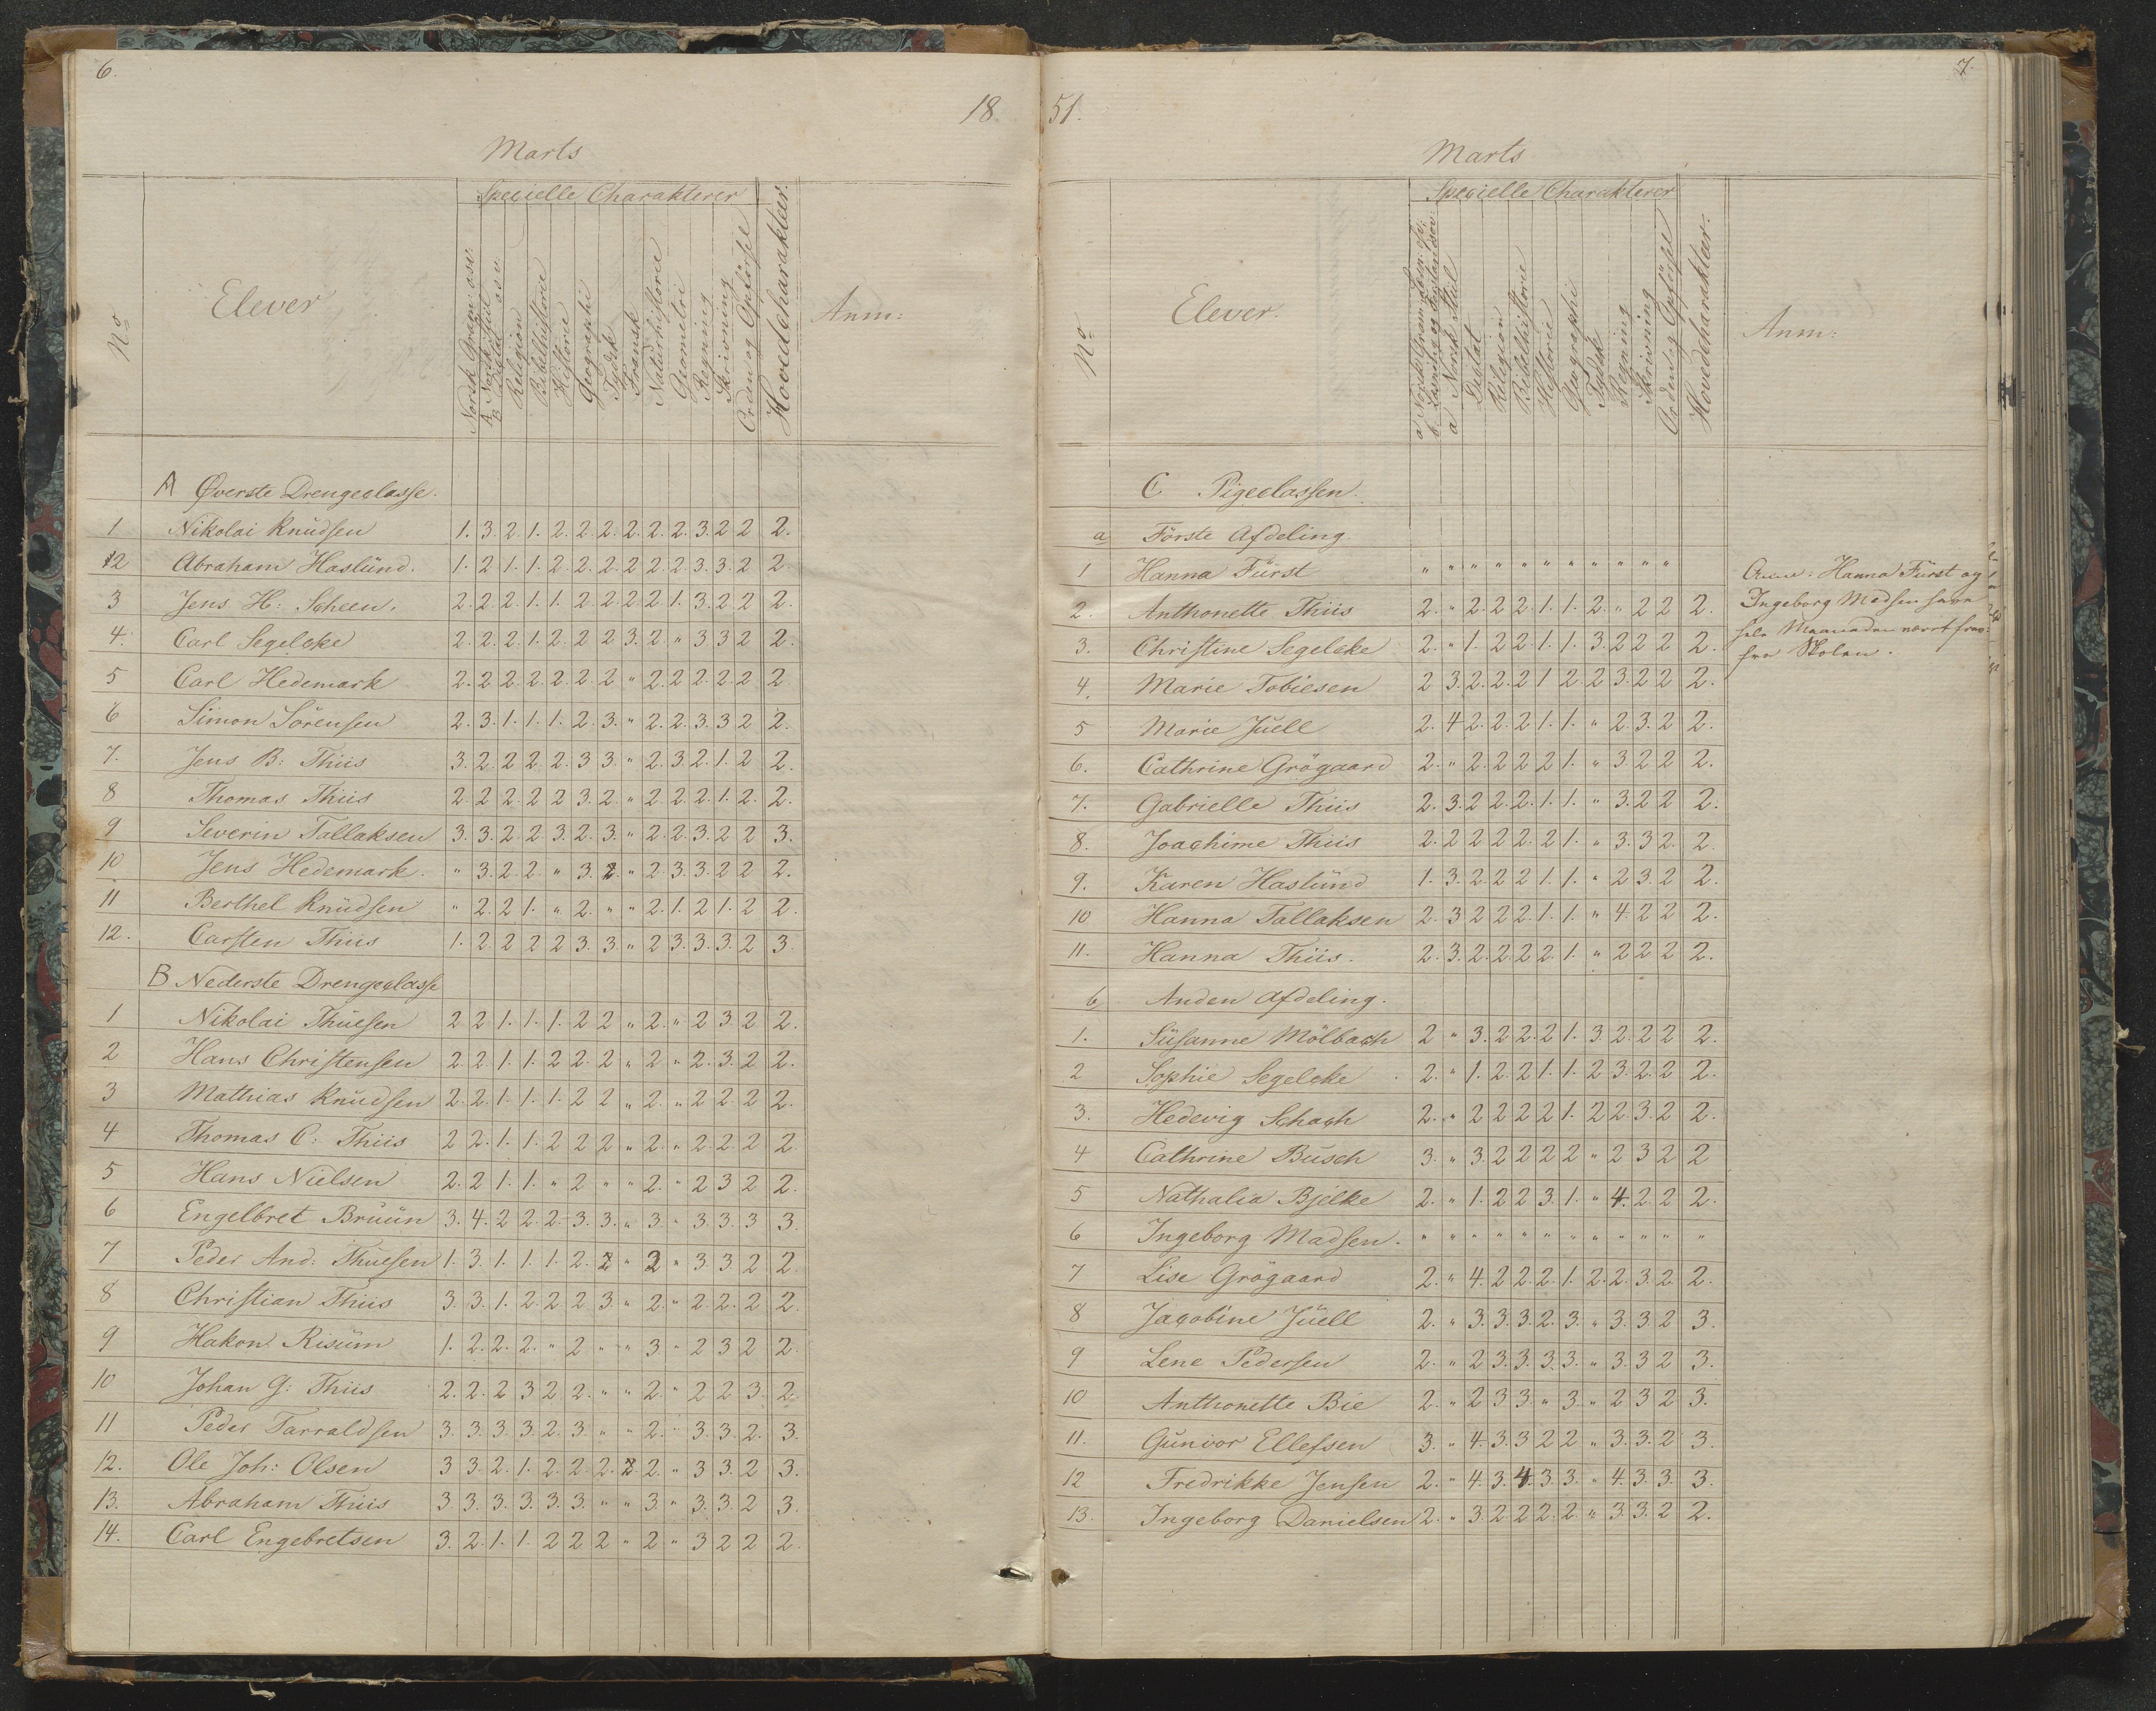 6.
18
Marts
Specielle Charakterer
No
Elever
Norsk Gram: osv:
A Norsk Stiil
B Dictat osv.
Religion
Bibelhistorie
Historie
Geographi
Tydsk
Fransk
Naturhistorie
Geometri
Regning
Skrivning
Orden og Opførsel
Hovedcharakter.
Anm:
A Øverste Drengeclasse.
1 Nikolai Knudsen 1. 3. 2. 1. 2. 2. 2. 2. 2. 2. 3. 2 2 2.
2 Abraham Haslund. 1. 2 1. 1. 2. 2. 2. 2 2. 2. 3. 3. 2 2.
3 Jens H: Scheen. 2. 2. 2. 1. 1. 2. 2. 2 2 1. 3. 2 2 2.
4. Carl Segelcke 2. 2. 2. 1. 2. 2. 2 3. 2. " 3 3 2 2.
5 Carl Hedemark 2. 2 2. 2. 2. 2. 2 " 2. 2. 2. 2. 2 2
6 Simon Sörensen 2. 3. 1. 1. 1. 2. 3. " 2. 2. 3. 3 2 2.
7. Jens B: Thiis 3. 2. 2 2. 2. 3 3. " 2. 3. 2. 1. 2 2.
8 Thomas Thiis 2. 2 2. 2 2 3. 2. " 2. 2. 2. 1. 2. 2.
9 Severin Tallaksen 3. 3. 2. 2 3. 2. 3. " 2. 2. 3. 2 2 3.
10 Jens Hedemark. " 3. 2. 2. " 3. 2. " 2. 3. 3. 2 2 2.
11 Berthel Knudsen " 2. 2 1. " 2. " " 2. 1. 2 1. 2 2.
12. Carsten Thiis 1. 2. 2 2 2 3. 3. " 2 3. 3. 3. 2 3.
B Nederste Drengeclasse
1 Nikolai Thuesen 2 2 1. 1. 1. 2 2 " 2. " 2 3 2 2.
2 Hans Christensen 2. 2 1. 1. 2 2. 2 " 2 " 2. 3. 2 2.
3 Mathias Knudsen 2. 2. 1. 1. 1. 2 2 " 2. " 2 2. 2 2.
4 Thomas C: Thiis 2 2. 1. 1. 2 2 2 " 2. " 2. 2. 2 2.
5 Hans Nielsen 2. 2 1. 1. " 2 " " 2. " 2 3 2 2.
6 Engelbret Bruun 3. 4. 2 2. 2. 3. 3. " 3. " 3. 3. 3 3.
7 Peder And: Thuesen 1. 3. 1. 1. 1. 2. 2 " 2 " 3 3 2 2.
8 Christian Thiis 3. 3. 1. 2. 2. 2 3. " 2. " 2. 2. 2 2.
9 Hakon Risum 1. 2. 2. 2. " 2 " " 3 " 2 3 2 2.
10 Johan G: Thiis 2. 2. 2 3 2 2. " " 2. " 2 2 3. 2.
11 Peder Tarraldsen 3. 3. 3. 3. 2. 3. " " 2. " 3. 3. 2. 3.
12. Ole Joh: Olsen 3 3. 2. 1. 2. 2. 2. 2. 2. " 3 3. 2 3.
13. Abraham Thiis 3. 3. 3. 3. 3. 3. " " 3 " 3. 3. 2 3.
14. Carl Engebretsen 3. 2. 1. 1. 2 2 2 " 2 " 3 2 2 2.
7.
51.
Marts
Specielle Charakterer
No
Elever.
a Norsk Stiil
Dictat
Religion
Bibelhistorie
Historie
Geographi
Tydsk
Regning
Skrivning
Orden og Opførsel
Hovedcharakter.
Anm:
C Pigeclassen.
a Förste Afdeling.
1 Hanna Fürst " " " " " " " " " " "
2. Anthonette Thiis 2. " 2. 2 2. 1. 1. 2. " 2 2 2.
3. Christine Segelcke 2. " 1. 2 2. 1. 1. 3. 2 2 2 2.
4. Marie Tobiesen 2 3. 2. 2. 2 1 2. 2 3. 2 2 2.
5 Marie Juell 2. 4 2. 2. 2 1. 1. " 2. 3. 2 2.
6. Cathrine Grögaard 2. " 2. 2 2 2 1. " 3. 2 2 2.
7. Gabrielle Thiis 2. 3. 2 2. 2. 1. 1. " 3. 2 2 2.
8. Joachime Thiis 2. 2 2 2 2. 2 1. " 3. 3 2. 2.
9. Karen Haslund 1. 3. 2. 2 2 1. 1. " 2 3. 2 2.
10 Hanna Tallaksen 2. 3 2 2 2. 1. 1. " 4. 2 2 2.
11. Hanna Thiis. 2. 3. 2. 2. 2 2. 1. " 2 2 2 2.
b Anden Afdeling.
1. Susanne Mölbach 2 " 3. 2 2. 2 1. 3. 2. 2 2 2.
2 Sophie Segelcke 2. " 1. 2. 2 1. 1. 2 3. 2. 2 2.
3. Hedevig Schach 2. " 2 2 2 2 1. 2 2. 3. 2 2.
4 Cathrine Busch 3. " 3. 2 2 2 2 " 2 3 2 2
5 Nathalia Bjelke 2. " 1. 2 2 3. 1. " 4. 2. 2 2.
6 Ingeborg Madsen. " " " " " " " " " " " "
7 Lise Grögaard 2. " 4. 2 2. 2. 1. 2. 2. 3. 2 2.
8 Jacobine Juell 2. " 3. 3. 3. 2. 3. " 3. 3. 2 3.
9 Lene Pedersen 2. " 2 3. 3. 3. 3. " 3. 3 2 3.
10 Anthonette Bie 2. " 2 3 3. " 3. " 2 3 2 3.
11. Gunvor Ellefsen 3. " 4. 3. 3 2 2 " 3. 3. 2 3.
12 Fredrikke Jensen 2. " 4. 3. 4. 3 3. " 4. 3. 3. 3.
13. Ingeborg Danielsen 2. " 3. 2. 2 2. 2. " 3. 3. 2 2.
Anm: Hanna Fürst og
Ingeborg Madsen have
hele Maaneden været fra
fra Skolen.